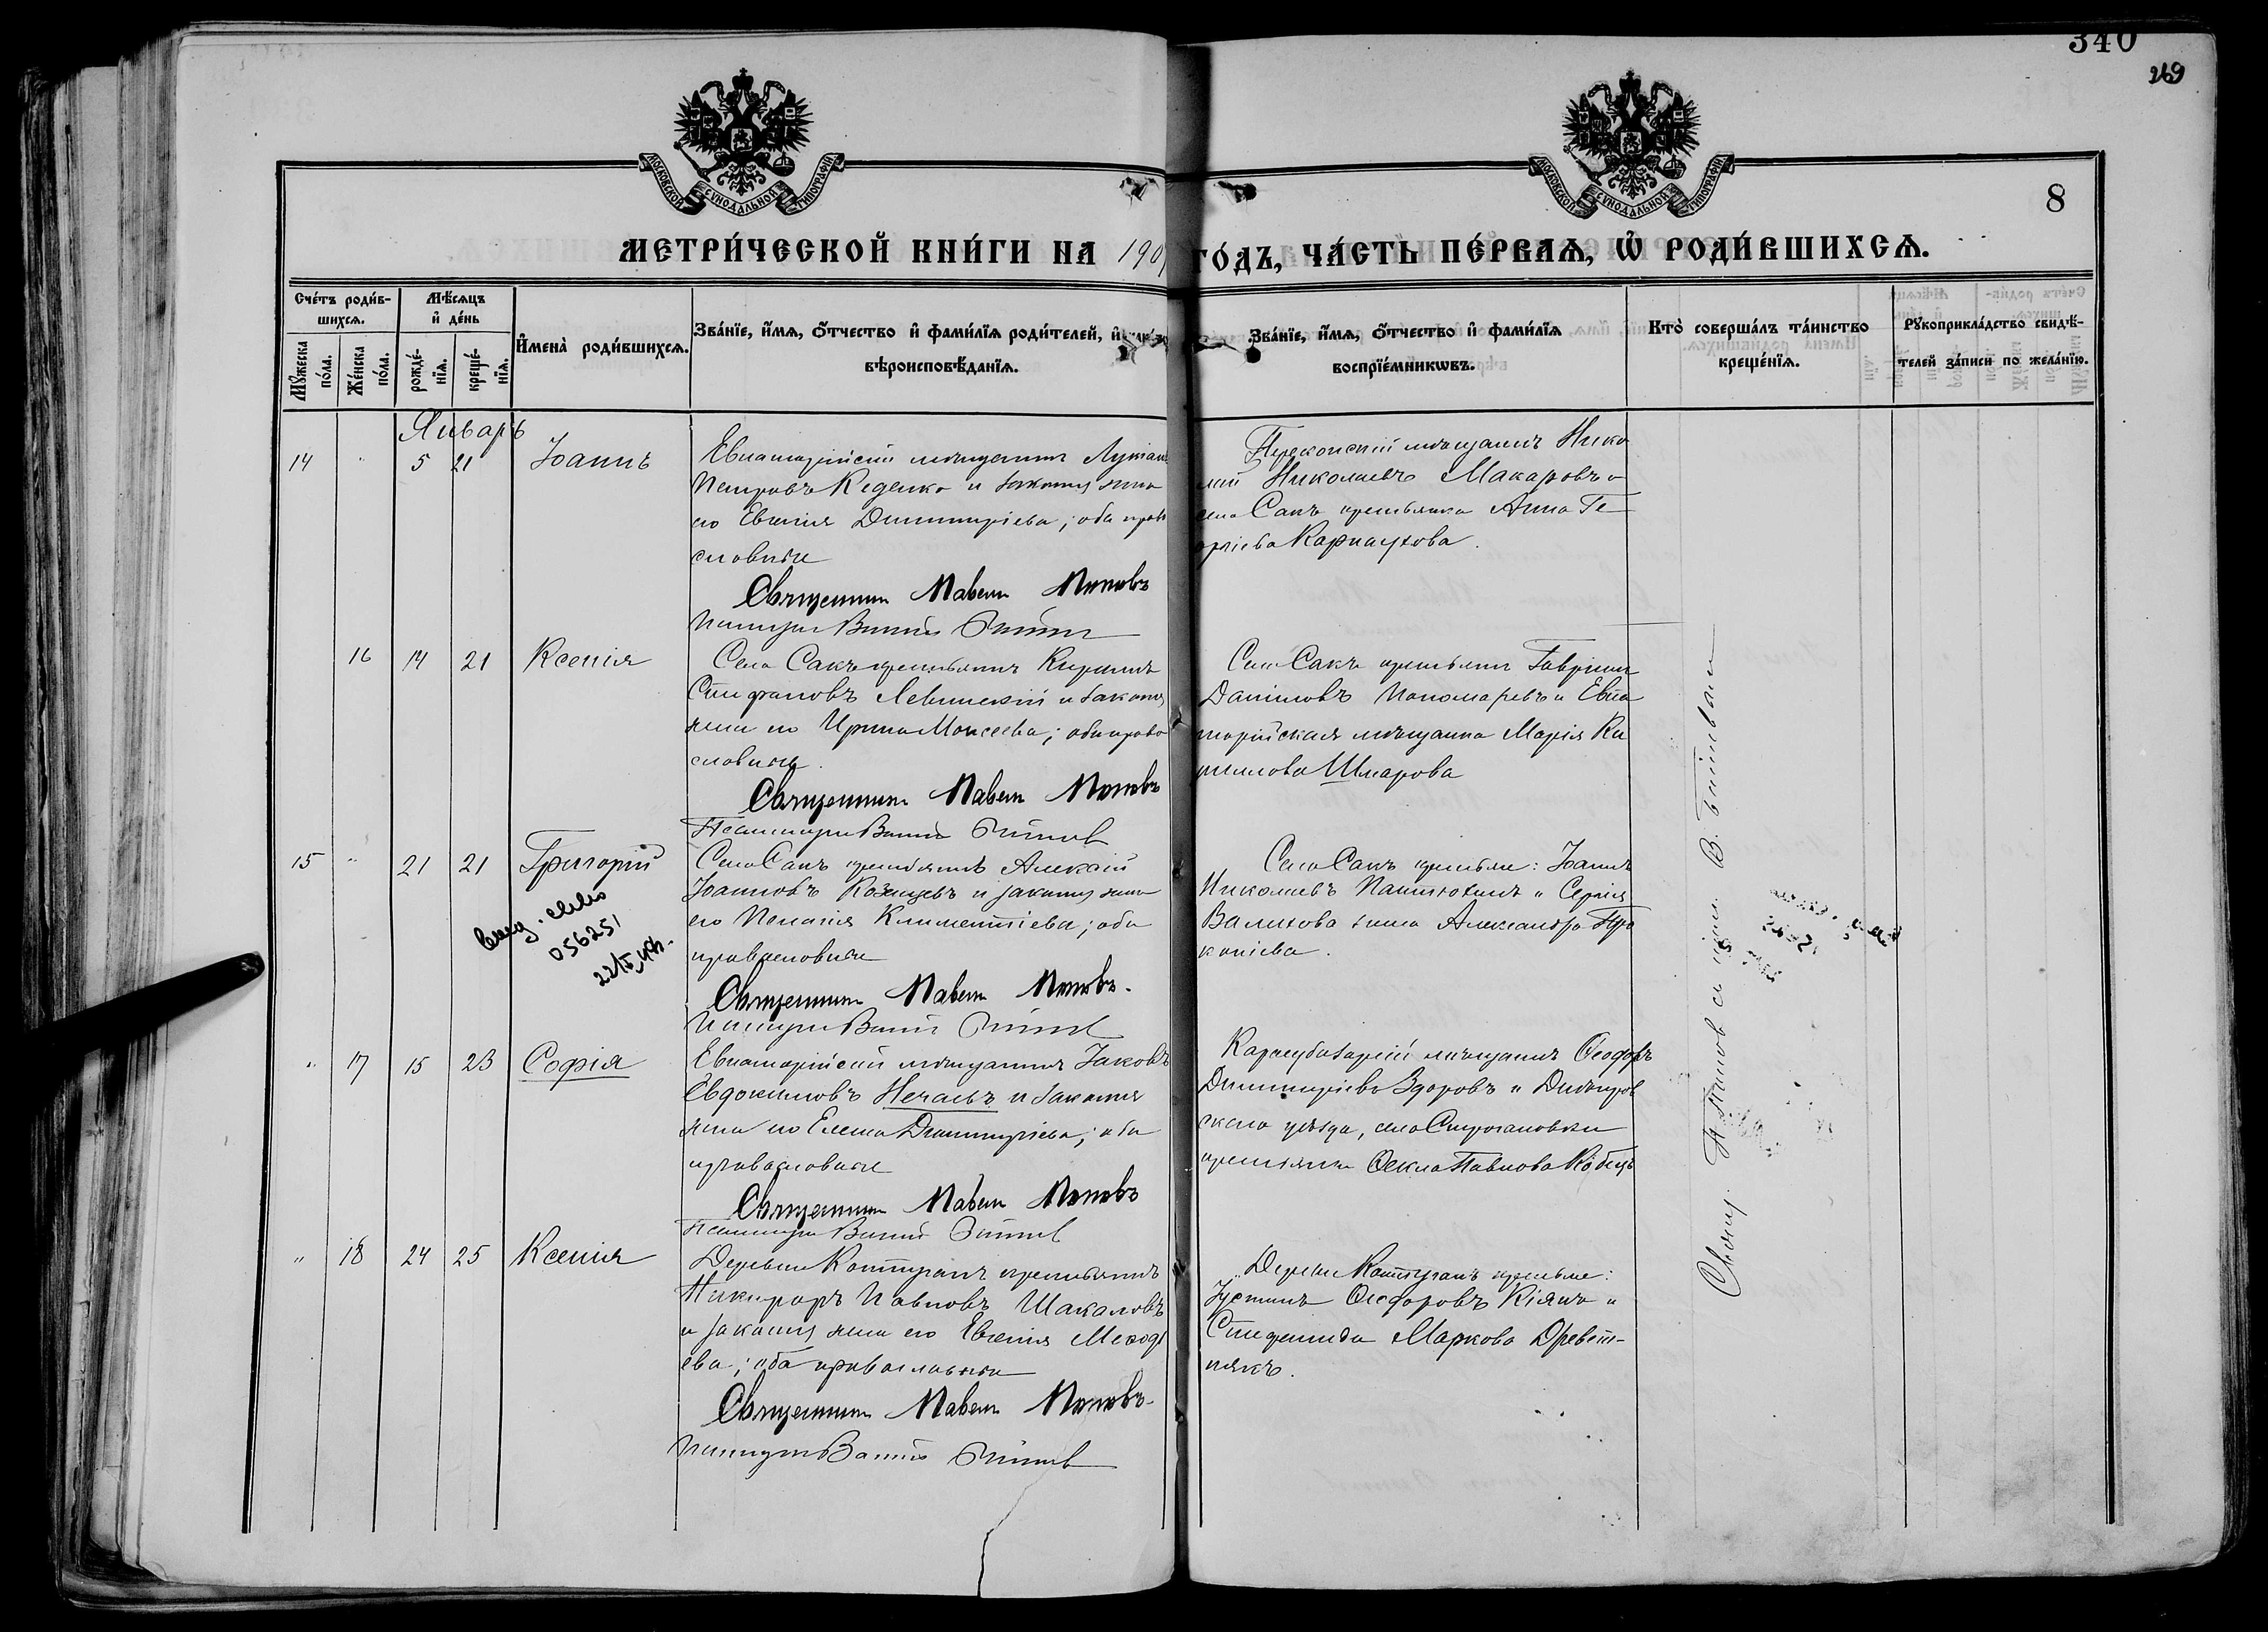 340
269
8
МОСКОВСКОЙ СѴНОДАЛЬНОЙ ТИПОГРАФІИ
МОСКОВСКОЙ СѴНОДАЛЬНОЙ ТИПОГРАФІИ
МЕТРИ́ЧЕСКОЙ КНИ́ГИ НА 190
ГО́ДЪ, ЧА́СТЬ ПЕ́РВАЯ, Ѡ҆ РОДИ́ВШИХСЯ.
Сче́тъ роди́в-
шихся.
Мѣ́сяцъ
и҆ де́нь
Мꙋ́жеска по́ла.
Же́нска по́ла.
рожде́-
нїя.
креще́-
нїя.
И҆мена̀ роди́вшихся.
Зва́нїе, и҆́мя, ѻ҆́тчество и҆ фами́лїя роди́телей, и҆
вѣроисповѣ́данїя.
Зва́нїе, и҆́мя, ѻ҆́тчество и҆ фами́лїя
воспрїе́мникѡвъ.
Кто̀ соверша́лъ та́инство
креще́нїя.
Рꙋкоприкла́дство свидѣ́-
телей за́писи по жела́нїю.
Январь
14 " 5 21 Іоаннъ
Евпаторійскій мѣщанинъ Лукіанъ
Петровъ Кеденко и законная жена
его Евгенія Димитріева; оба право
славные
Священникъ Павелъ Поповъ
Псаломщикъ
Перекопскій мѣщанинъ Нико
лай Николаевъ Макаровъ и
села Сакъ крестьянка Анна Ге
оргіева Карнаухова.
16 14 21 Ксенія
Села Сакъ крестьянинъ Кириллъ
Стефановъ Левинскій и законная
жена его Ирина Моисеева; оба право
славные.
Священникъ Павелъ Поповъ
Псаломщикъ
Села Сакъ крестьянинъ Гавріилъ
Даніиловъ Пономаревъ и Евпа
торійская мѣщанка Марія Ки
риллова Шмарова
15 " 21 21 Григорій
выд. свид
056251
Села Сакъ крестьянинъ Алексій
Іоанновъ Казанцевъ и законная жена
его Пелагія Климентіева; оба
православные
Священникъ Павелъ Поповъ.
Псаломщикъ
Села Сакъ крестьяне: Іоаннъ
Николаевъ Пантюхинъ и Сергія
Валихова жена Александра Про
копіева.
" 17 15 23 Софія
Евпаторійскій мѣщанинъ Іаковъ
Евдокимовъ Нечаевъ и законная
жена его Елена Димитріева; оба
православные
Священникъ Павелъ Поповъ
Псаломщикъ
Карасубазарскій мѣщанинъ Ѳеодоръ
Димитріевъ Здоровъ и Днѣпров
скаго уѣзда, села Строгановки
крестьянка Ѳекла Павлова Кобецъ
" 18 24 25 Ксенія
Деревни Контуганъ крестьянинъ
Никифоръ Павловъ Шакаловъ
и законная жена его Евгенія Меѳоді
ева; оба православные
Священникъ Павелъ Поповъ
Псаломщикъ
Деревни Контуганъ крестьяне:
Іустинъ Ѳеодоровъ Кіяшъ и
Стефанида Маркова Древет-
някъ.
Свящ. П. Поповъ съ псал. В.